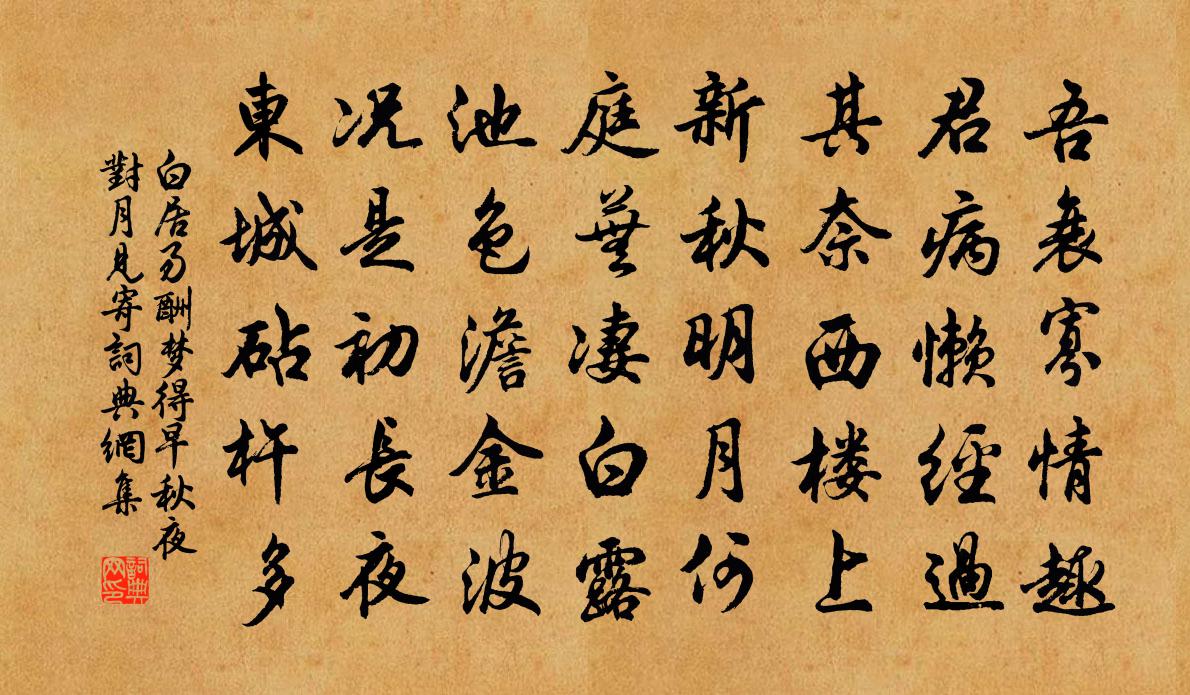 吾衰寡情趣
君病懒經過
其奈西楼上
新秋明月何
庭蕪凄白露
池色澹金波
况是初長夜
東城砧杵多
白居易酬梦得早秋夜
對月見寄詞典網集
詞典
网印